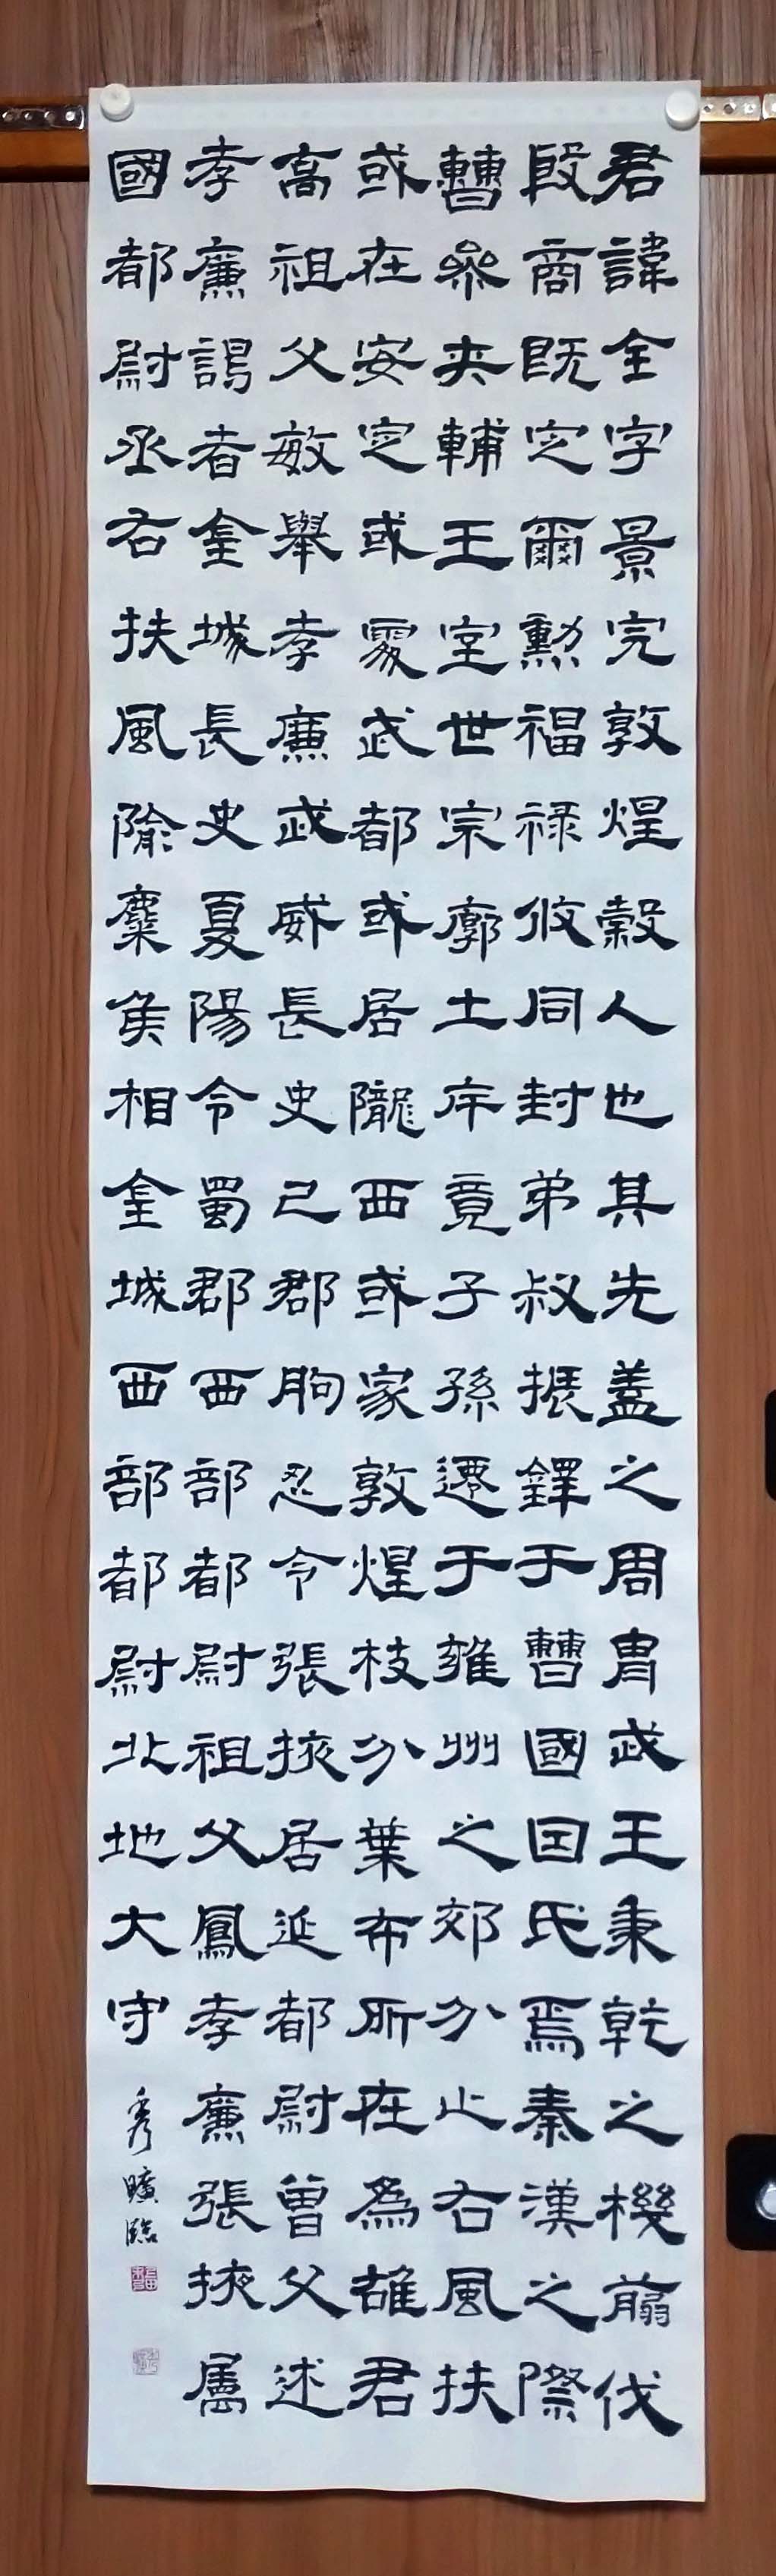 君諱全字景完敦煌穀人也其先蓋之周胄武王秉乾之機翦伐
殷商既定爾勳福祿攸同封弟叔振鐸于曹國因氏焉秦漢之際
曹參夾輔王室世宗廓土斥竟子孫遷于雍州之郊分止右風扶
或在安定或處武都或居隴西或家敦煌枝分葉布所在為雄君
高祖父敏舉孝廉武威長史巴郡朐忍令張掖居延都尉曾父述
孝廉謁者金城長史夏陽令蜀郡西部都尉祖父鳳孝廉張掖屬
國都尉丞右扶風隃麋侯相金城西部都尉北地大守
秀曠臨